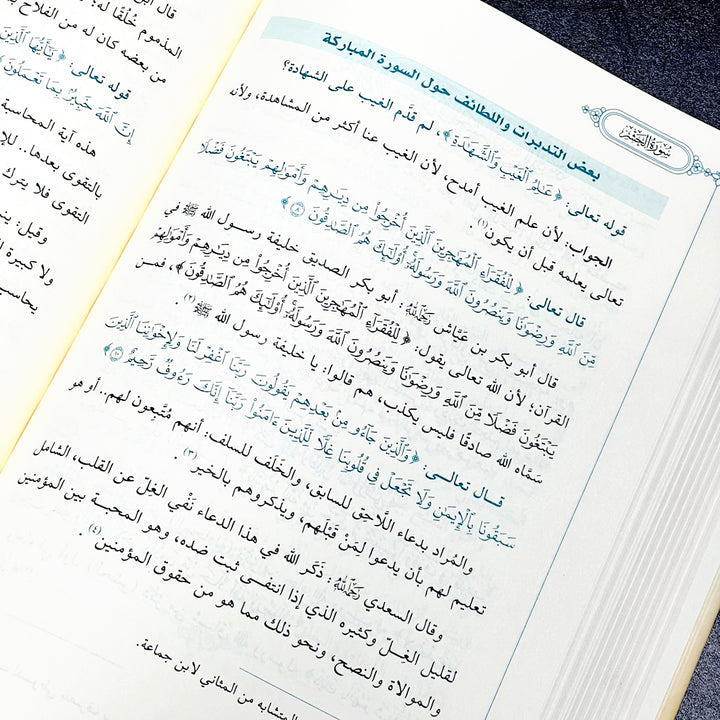 سورة الحشر
بعض التدبرات واللطائف حول السورة المباركة
قوله تعالى: ﴿عَٰلِمُ ٱلْغَيْبِ وَٱلشَّهَٰدَةِ﴾، لم قدَّم الغيب على الشهادة؟
الجواب: لأن علم الغيب أمدح، لأن الغيب عنا أكثر من المشاهدة، ولأن
تعالى يعلمه قبل أن يكون(١).
قال تعالى: ﴿لِلْفُقَرَآءِ ٱلْمُهَٰجِرِينَ ٱلَّذِينَ أُخْرِجُوا۟ مِن دِيَٰرِهِمْ وَأَمْوَٰلِهِمْ يَبْتَغُونَ فَضْلًا
مِّنَ ٱللَّهِ وَرِضْوَٰنًا وَيَنصُرُونَ ٱللَّهَ وَرَسُولَهُۥٓ أُو۟لَٰٓئِكَ هُمُ ٱلصَّٰدِقُونَ ٨﴾
قال أبو بكر بن عيَّاش رَحِمَهُ اللَّهُ: أبو بكر الصديق خليفة رسول الله ﷺ في
القرآن؛ لأن الله تعالى يقول: ﴿لِلْفُقَرَآءِ ٱلْمُهَٰجِرِينَ ٱلَّذِينَ أُخْرِجُوا۟ مِن دِيَٰرِهِمْ وَأَمْوَٰلِهِمْ
يَبْتَغُونَ فَضْلًا مِّنَ ٱللَّهِ وَرِضْوَٰنًا وَيَنصُرُونَ ٱللَّهَ وَرَسُولَهُۥٓ أُو۟لَٰٓئِكَ هُمُ ٱلصَّٰدِقُونَ﴾، فمن
سَمَّاه الله صادقًا فليس يكذب، هم قالوا: يا خليفة رسول الله ﷺ(٢).
قال تعالى: ﴿وَٱلَّذِينَ جَآءُو مِنۢ بَعْدِهِمْ يَقُولُونَ رَبَّنَا ٱغْفِرْ لَنَا وَلِإِخْوَٰنِنَا ٱلَّذِينَ
سَبَقُونَا بِٱلْإِيمَٰنِ وَلَا تَجْعَلْ فِى قُلُوبِنَا غِلًّا لِّلَّذِينَ ءَامَنُوا۟ رَبَّنَآ إِنَّكَ رَءُوفٌ رَّحِيمٌ ١٠﴾
والمُراد بدعاء اللَّاحِق للسابق، والخَلَف للسلف: أنهم مُتَّبِعون لهم.. أو هو
تعليم لهم بأن يدعوا لِمَنْ قَبْلَهم، ويذكروهم بالخير(٣).
وقال السعدي رَحِمَهُ اللَّهُ: ذَكَر الله في هذا الدعاء نَفْي الغِلّ عن القلب، الشامل
لقليل الغِلّ وكثيره الذي إذا انتفى ثبت ضده، وهو المحبة بين المؤمنين
والموالاة والنصح، ونحو ذلك مما هو من حقوق المؤمنين(٤).
المتشابه من المثاني لابن جماعة.
قال ابن
المذموم خُلُقًا له؛
من بعضه كان له من الفلاح ب
قوله تعالى: ﴿يَٰٓأَيُّهَا ٱلَّذِينَ
إِنَّ ٱللَّهَ خَبِيرٌۢ بِمَا تَعْمَلُونَ
هذه آية المحاسبة
بالتقوى بعدها.. للإ
التقوى فلا يترك
وقيل: ين
ولا كبيرة ا
يحاسب